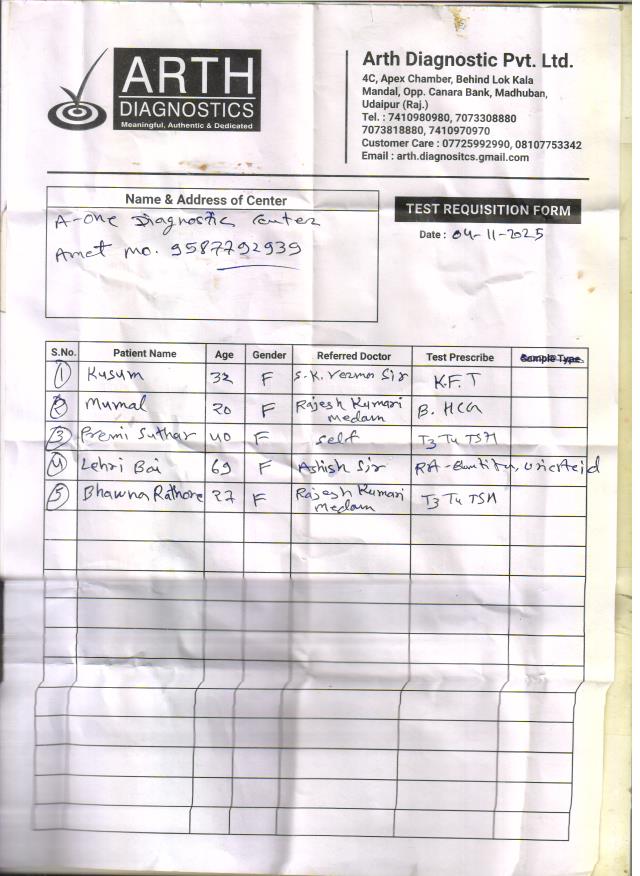 ARTH
DIAGNOSTICS
Meaningful, Authentic & Dedicated
Arth Diagnostic Pvt. Ltd.
4C, Apex Chamber, Behind Lok Kala
Mandal, Opp. Canara Bank, Madhuban,
Udaipur (Raj.)
Tel. : 7410980980, 7073308880
7073818880, 7410970970
Customer Care : 07725992990, 08107753342
Email : arth.diagnositcs.gmail.com
Name & Address of Center
A-One Diagnostic Center
Amet mo. 9587792939
TEST REQUISITION FORM
Date : 04-11-2025
S.No. Patient Name Age Gender Referred Doctor Test Prescribe Sample Type
1 Kusum 32 F S.K. Verma Sir K.F.T
2 Mumal 20 F Rajesh Kumari Medam B. HCG
3 Premi Suthar 40 F Self T3 T4 TSH
4 Lehri Bai 69 F Ashish Sir RA- uricAcid
5 Bhawna Rathore 27 F Rajesh Kumari Medam T3 T4 TSH